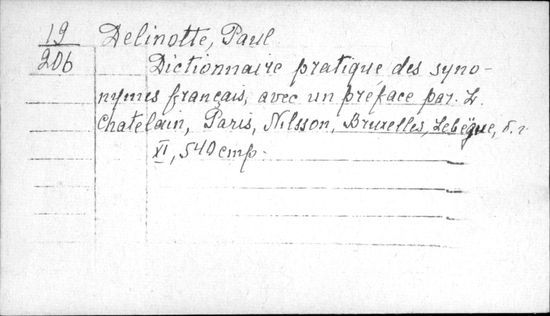 19 Delinotte, Paul
206 Dictionnaire pratique des syno-
nymes français, avec un préface par. L.
Chatelain, Paris, Nilsson, Bruxelles, Lebègue, б. г.
XI, 540 стр.